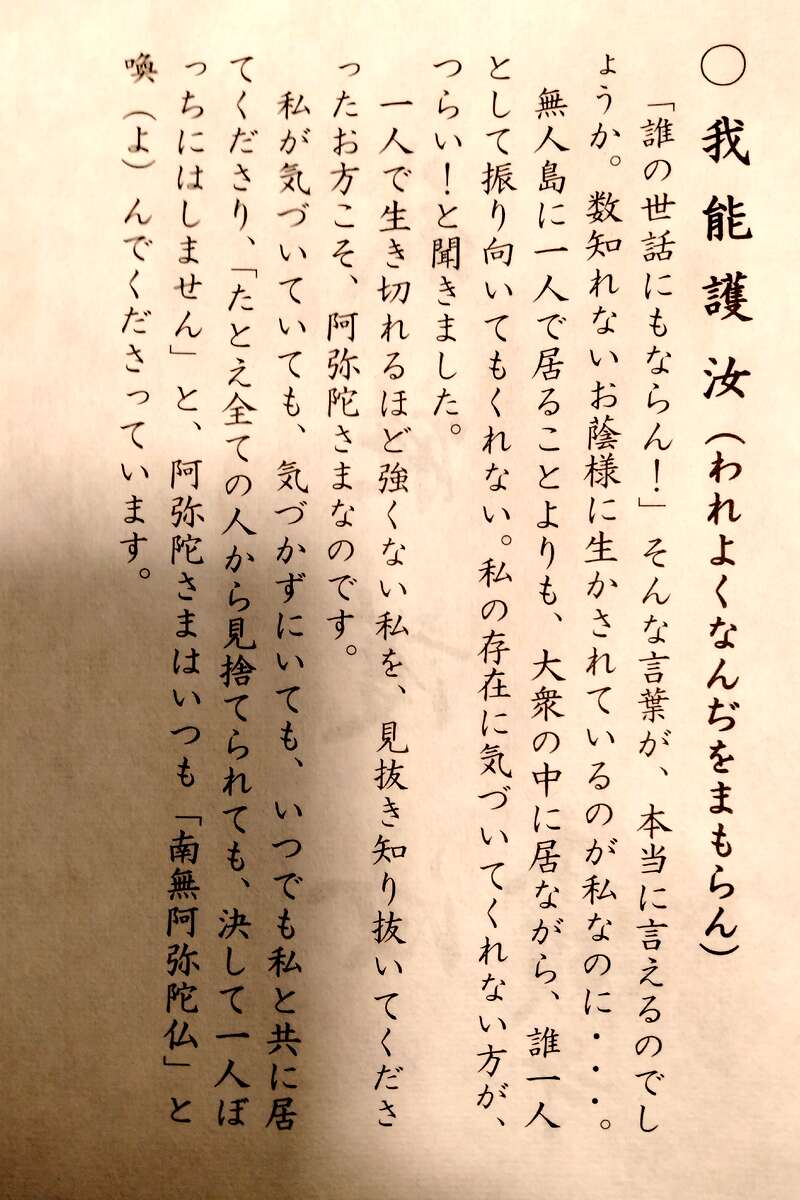 〇我能護汝(われよくなんぢをまもらん)
「誰の世話にもならん!」そんな言葉が、本当に言えるのでし
ょうか。数知れないお蔭様に生かされているのが私なのに・・・。
無人島に一人で居ることよりも、大衆の中に居ながら、誰一人
として振り向いてもくれない。私の存在に気づいてくれない方が、
つらい!と聞きました。
一人で生き切れるほど強くない私を、見抜き知り抜いてくださ
ったお方こそ、阿弥陀さまなのです。
私が気づいていても、気づかずにいても、いつでも私と共に居
てくださり、「たとえ全ての人から見捨てられても、決して一人ぼ
っちにはしません」と、阿弥陀さまはいつも「南無阿弥陀仏」と
喚(よ)んでくださっています。